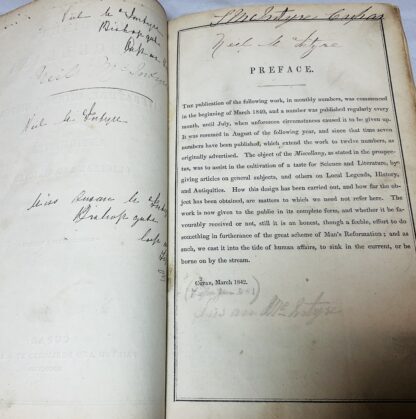 Neil McIntyre
Bishopgate
Neil McIntyre
Neil McIntyre
Miss Susan Mc
Bishopgate
McIntyre Cupar
Neil McIntyre
PREFACE.
THE publication of the following work, in monthly numbers, was commenced
in the beginning of March 1840, and a number was published regularly every
month, until July, when unforeseen circumstances caused it to be given up.
It was resumed in August of the following year, and since that time seven
numbers have been published, which extend the work to twelve numbers, as
originally advertised. The object of the Miscellany, as stated in the prospec-
tus, was to assist in the cultivation of a taste for Science and Literature, by
giving articles on general subjects, and others on Local Legends, History,
and Antiquities. How this design has been carried out, and how far the ob-
ject has been obtained, are matters which we need not refer here. The
work is now given to the public in its complete form, and whether it be fa-
vourably received or not, still it is an honest, though a feeble, effort to do
something in furtherance of the great scheme of Man's Reformation; and as
such, we cast it into the tide of human affairs, to sink in the current, or be
borne on by the stream.
CUPAR, March 1842.
McIntyre
CUPAR